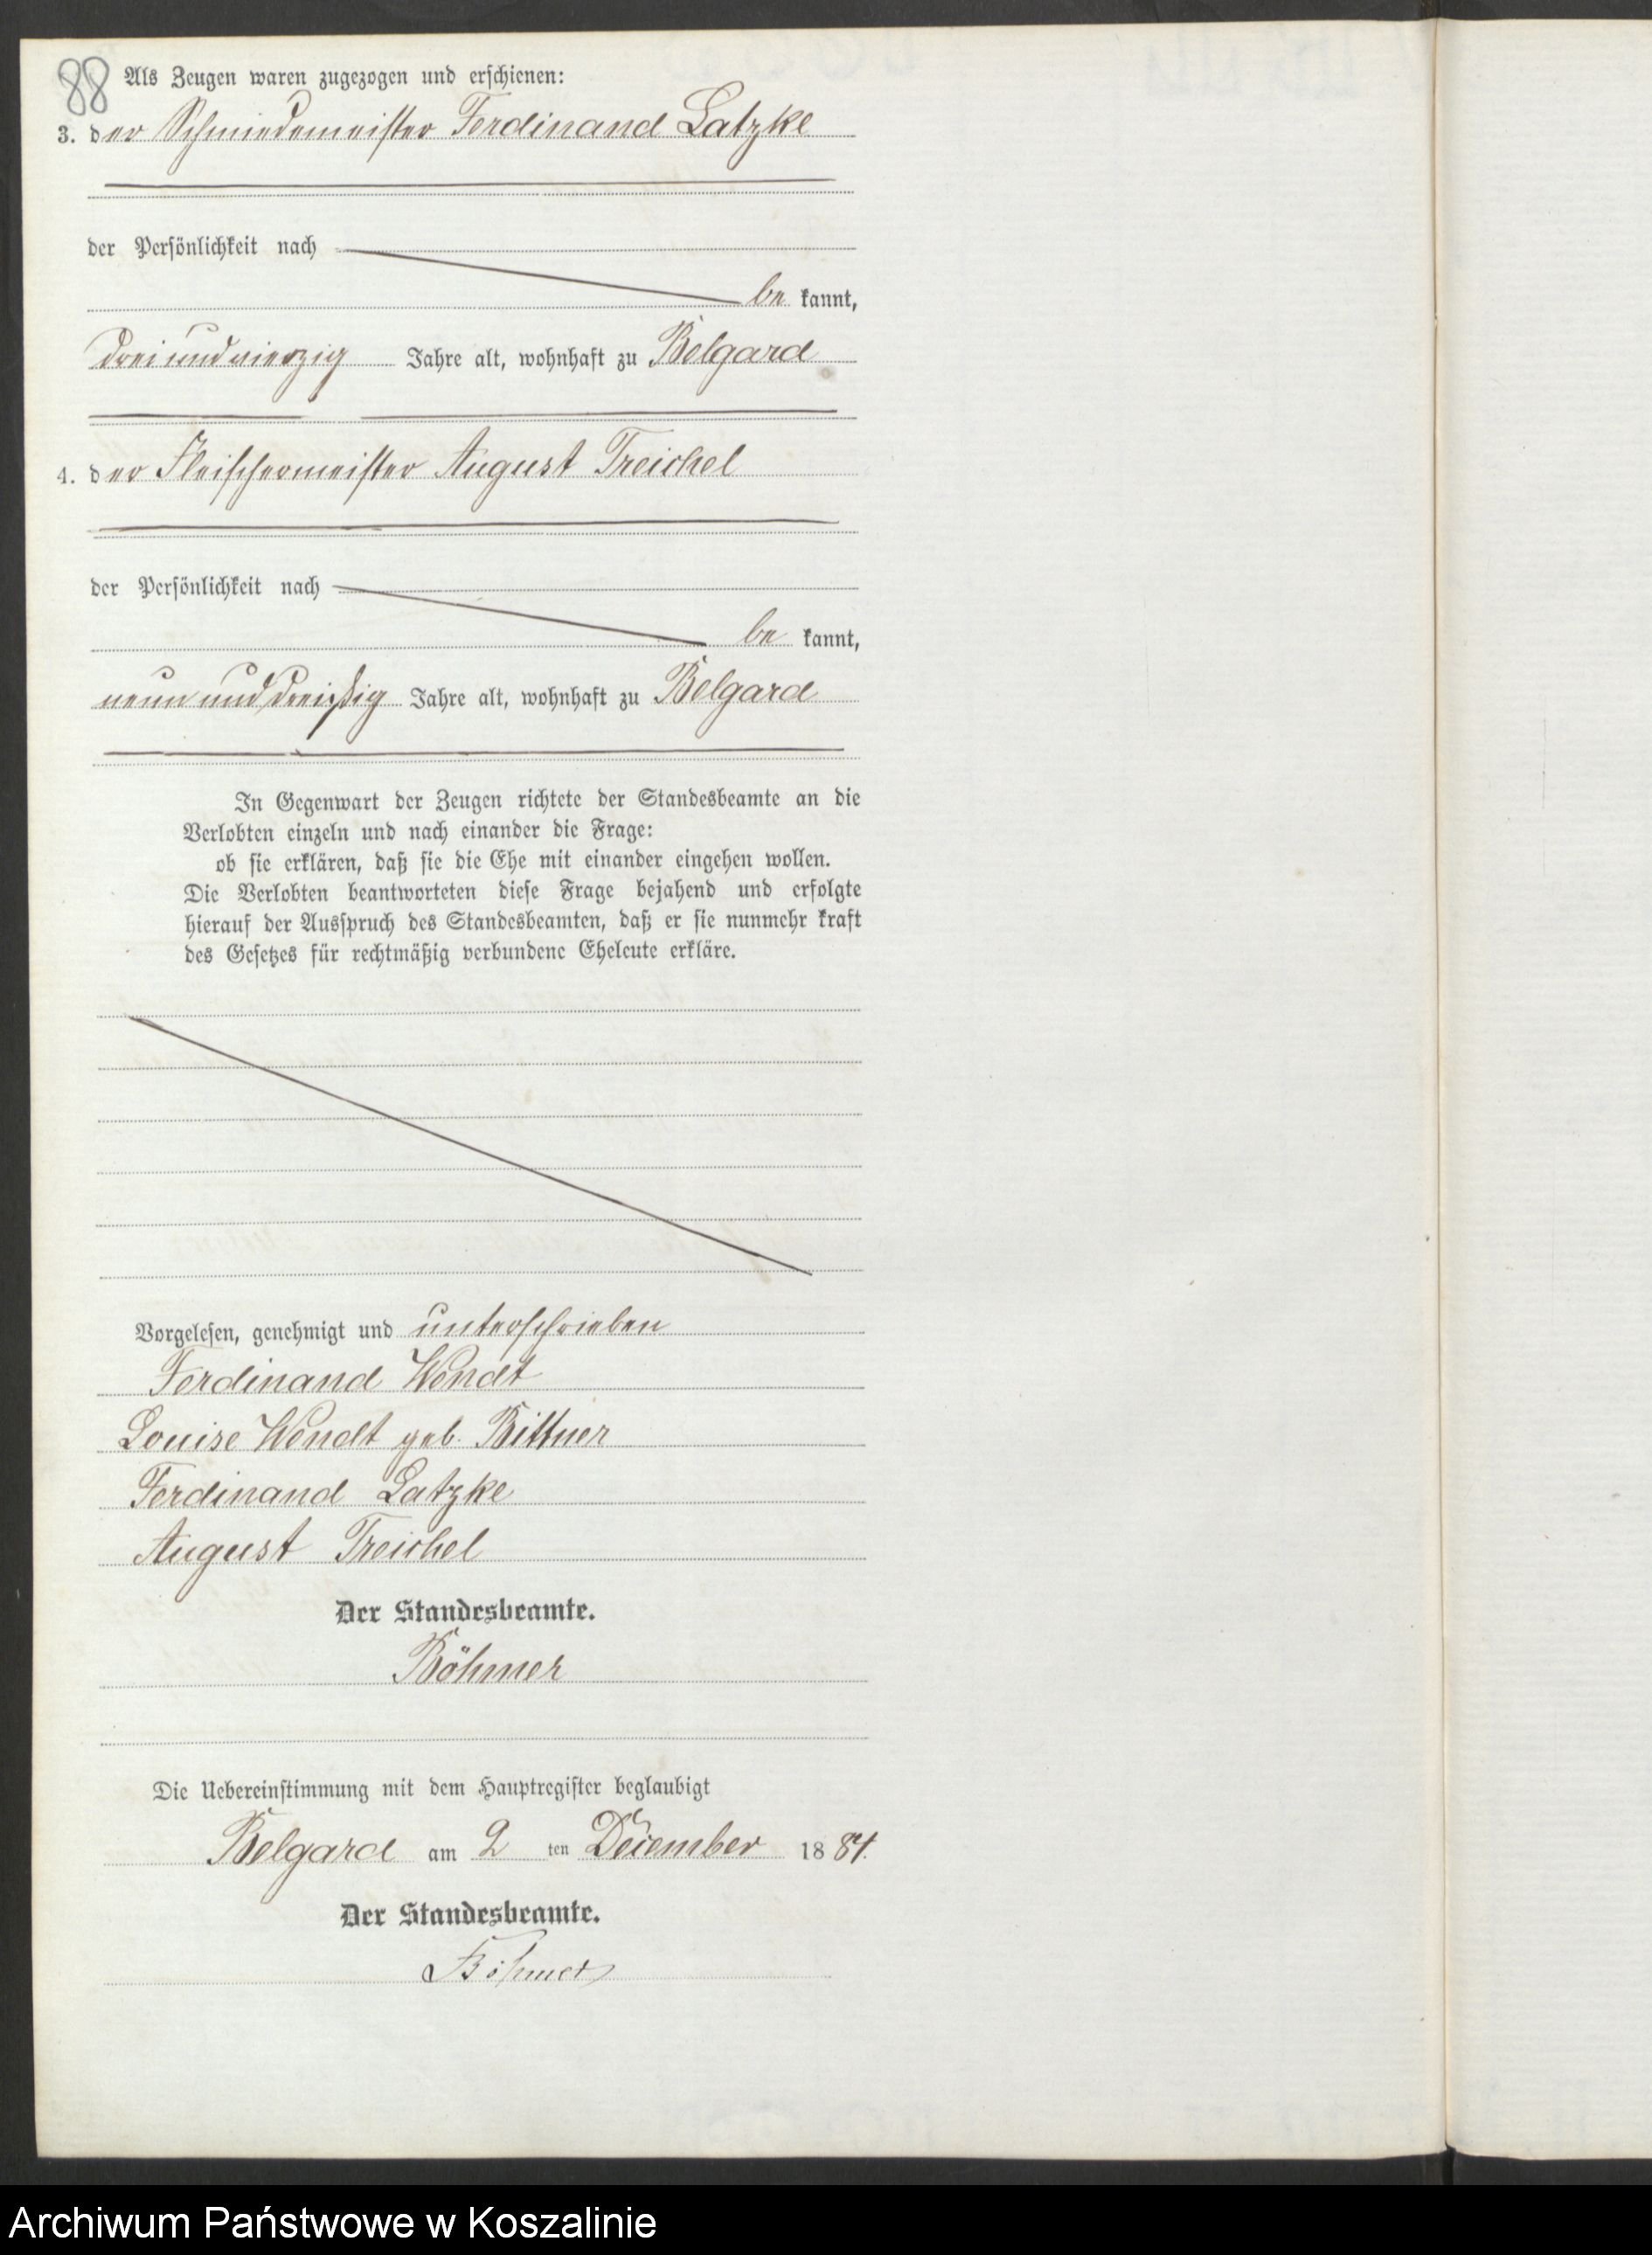 88
Als Zeugen waren zugezogen und erschienen:
3. der Schmiedemeister Ferdinand Latzke
der Persönlichkeit nach
be kannt,
dreiundvierzig Jahre alt, wohnhaft zu Belgard
4. der Fleischermeister August Treichel
der Persönlichkeit nach
be kannt,
neun und dreißig Jahre alt, wohnhaft zu Belgard
In Gegenwart der Zeugen richtete der Standesbeamte an die
Verlobten einzeln und nach einander die Frage:
ob sie erklären, daß sie die Ehe mit einander eingehen wollen.
Die Verlobten beantworteten diese Frage bejahend und erfolgte
hierauf der Ausspruch des Standesbeamten, daß er sie nunmehr kraft
des Gesetzes für rechtmäßig verbundene Eheleute erkläre.
Vorgelesen, genehmigt und unterschrieben
Ferdinand Wendt
Louise Wendt geb. Bittner
Ferdinand Latzke
August Treichel
Der Standesbeamte.
Böhmer
Die Uebereinstimmung mit dem Hauptregister beglaubigt
Belgard am 2 ten December 1884.
Der Standesbeamte.
Böhmer
Archiwum Państwowe w Koszalinie